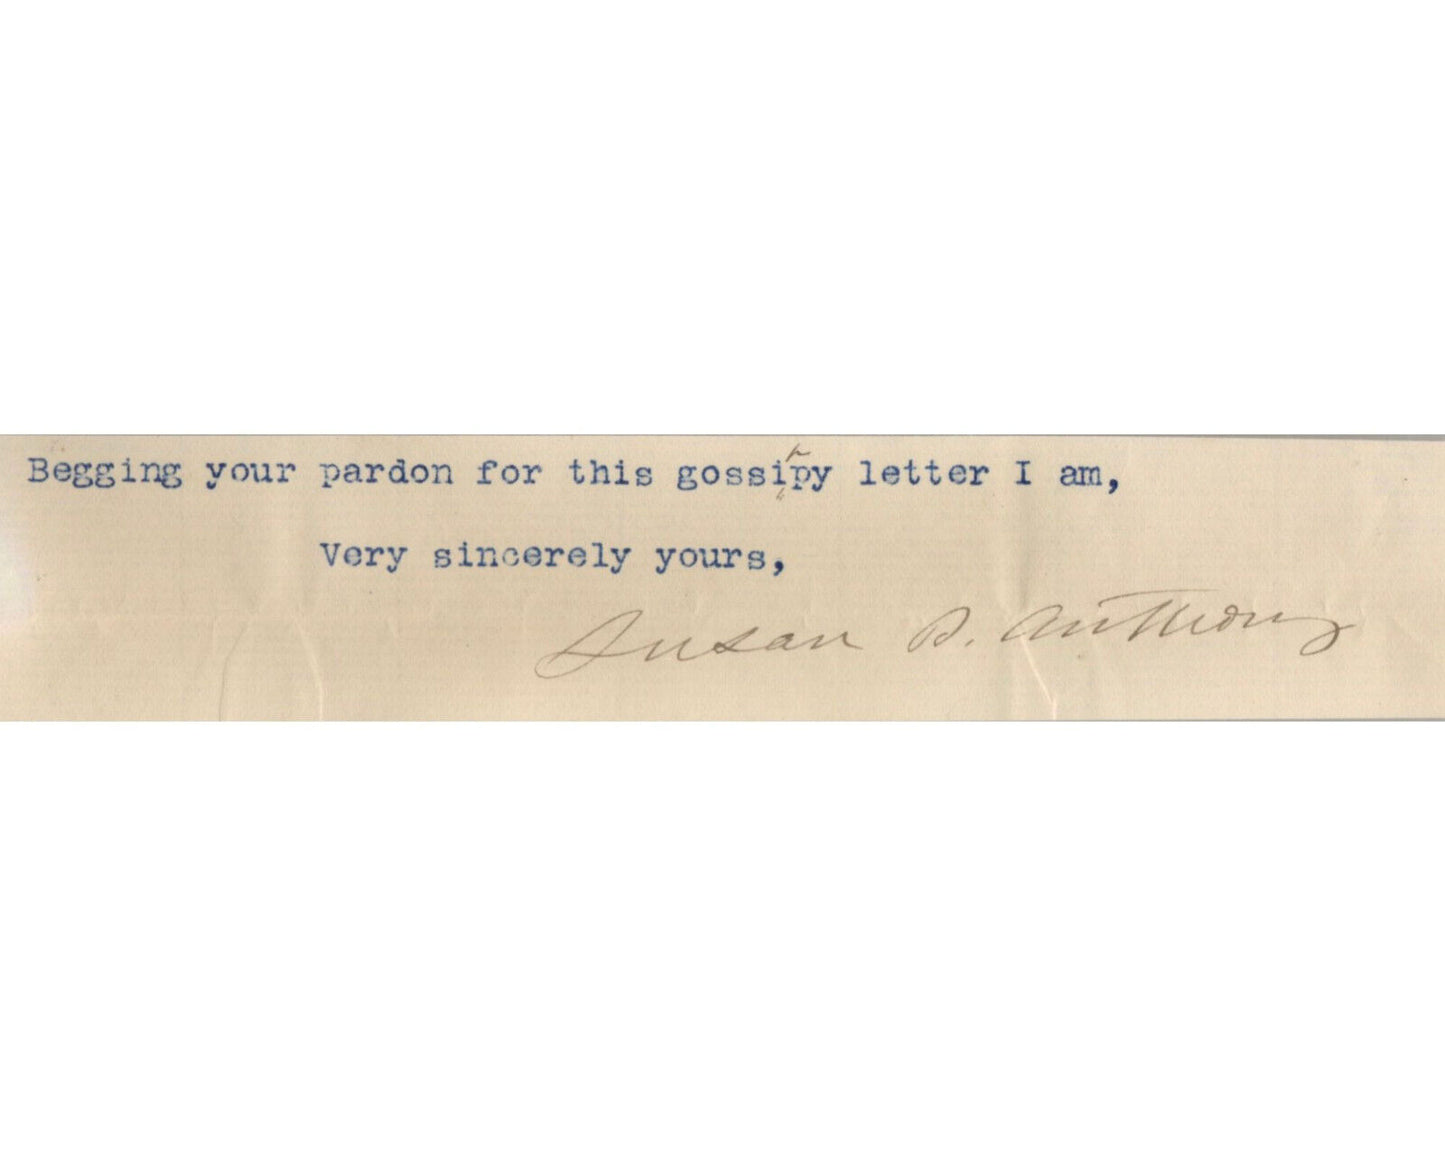 Begging your pardon for this gossipy letter I am,
Very sincerely yours,
Susan B. Anthony